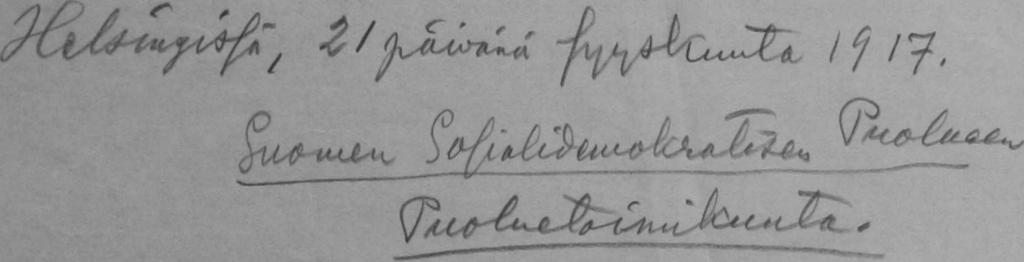 Helsingissä, 21 päivänä syyskuuta 1917.
Suomen Sosialidemokratisen Puolueen
Puoluetoimikunta.